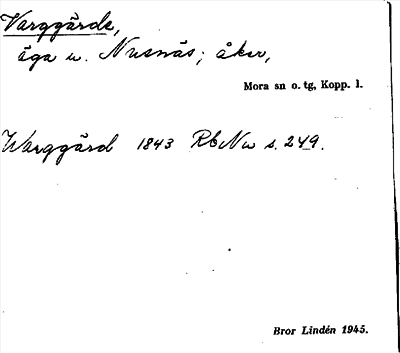 Varggärde,
äga u. Nusnäs; åker,
Mora sn o. tg, Kopp. l.
Warggärd 1843 RbNu s. 249.
Bror Lindén 1945.